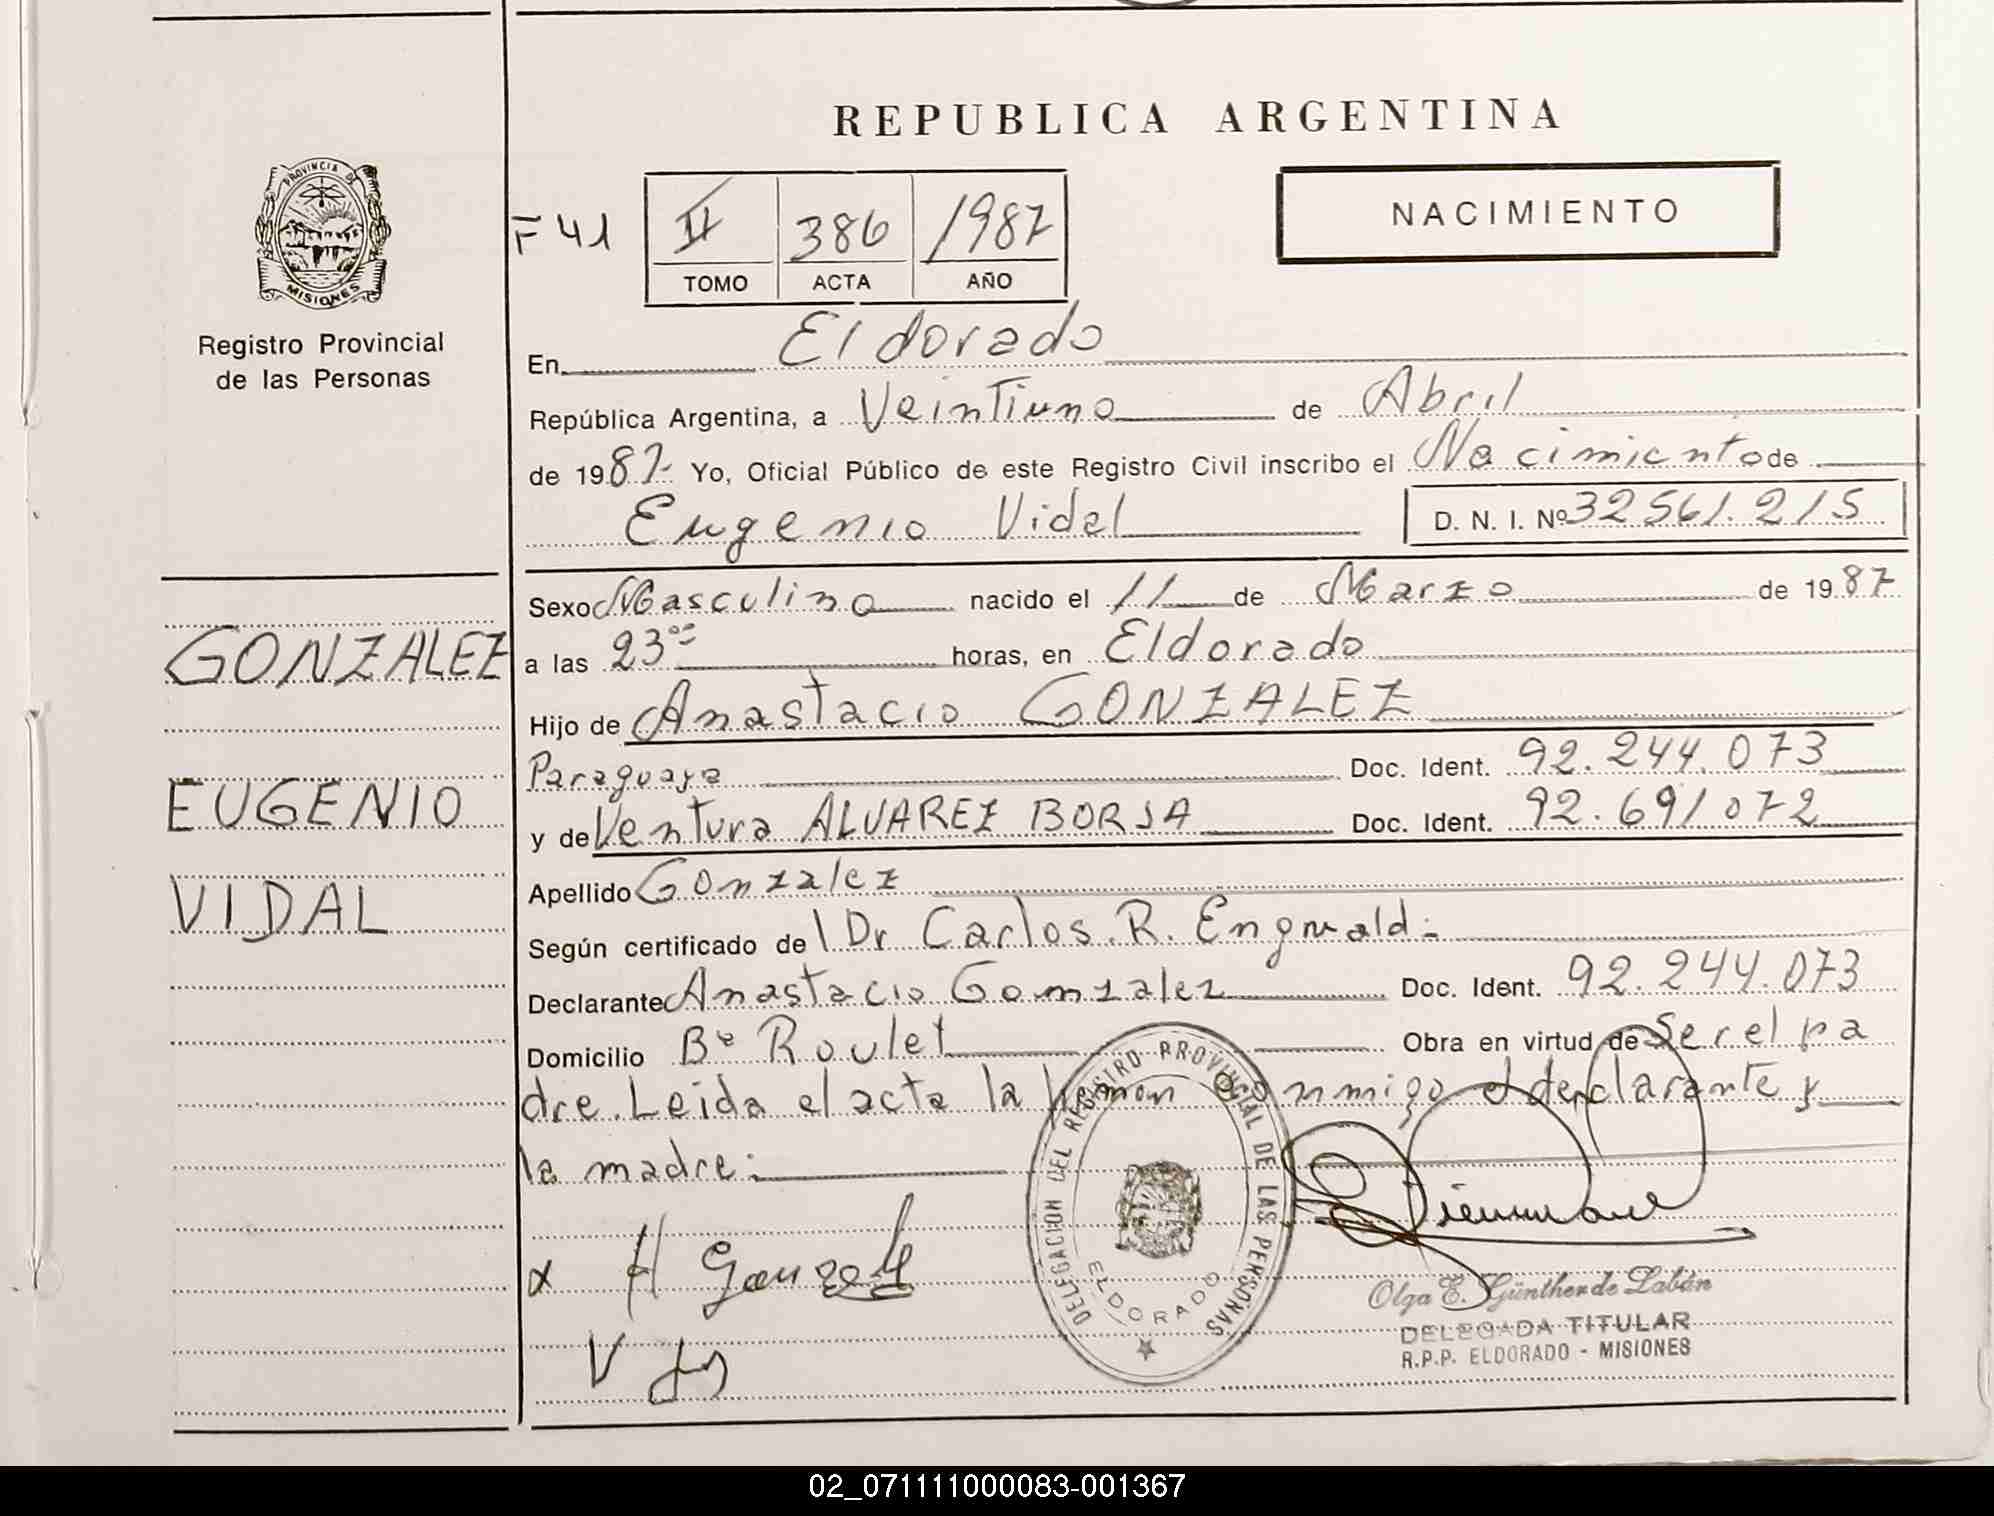 REPUBLICA ARGENTINA
PROVINCIA DE
MISIONES
Registro Provincial
de las Personas
F 41
II
386
1987
TOMO
ACTA
AÑO
NACIMIENTO
En Eldorado
República Argentina, a Veintiuno de Abril
de 1987 Yo, Oficial Público de este Registro Civil inscribo el Nacimiento de
Eugenio Vidal D. N. I. Nº 32561.215
GONZALEZ
EUGENIO
VIDAL
Sexo Masculino nacido el 11 de Marzo de 1987
a las 23⁰⁰ horas, en Eldorado
Hijo de Anastacio GONZALEZ
Paraguaya Doc. Ident. 92.244.073
y de Ventura ALVAREZ BORJA Doc. Ident. 92.691072
Apellido Gonzalez
Según certificado de l Dr Carlos. R. Engwald.
Declarante Anastacio Gonzalez Doc. Ident. 92.244.073
Domicilio Bº Roulet Obra en virtud de Ser el pa
dre. Leida el acta la firman conmigo el declarante y
la madre.
x A Gonzalez
DELEGACION DEL REGISTRO PROVINCIAL DE LAS PERSONAS
ELDORADO
Olga E. Günther de Labán
DELEGADA TITULAR
R.P.P. ELDORADO - MISIONES
02_071111000083-001367